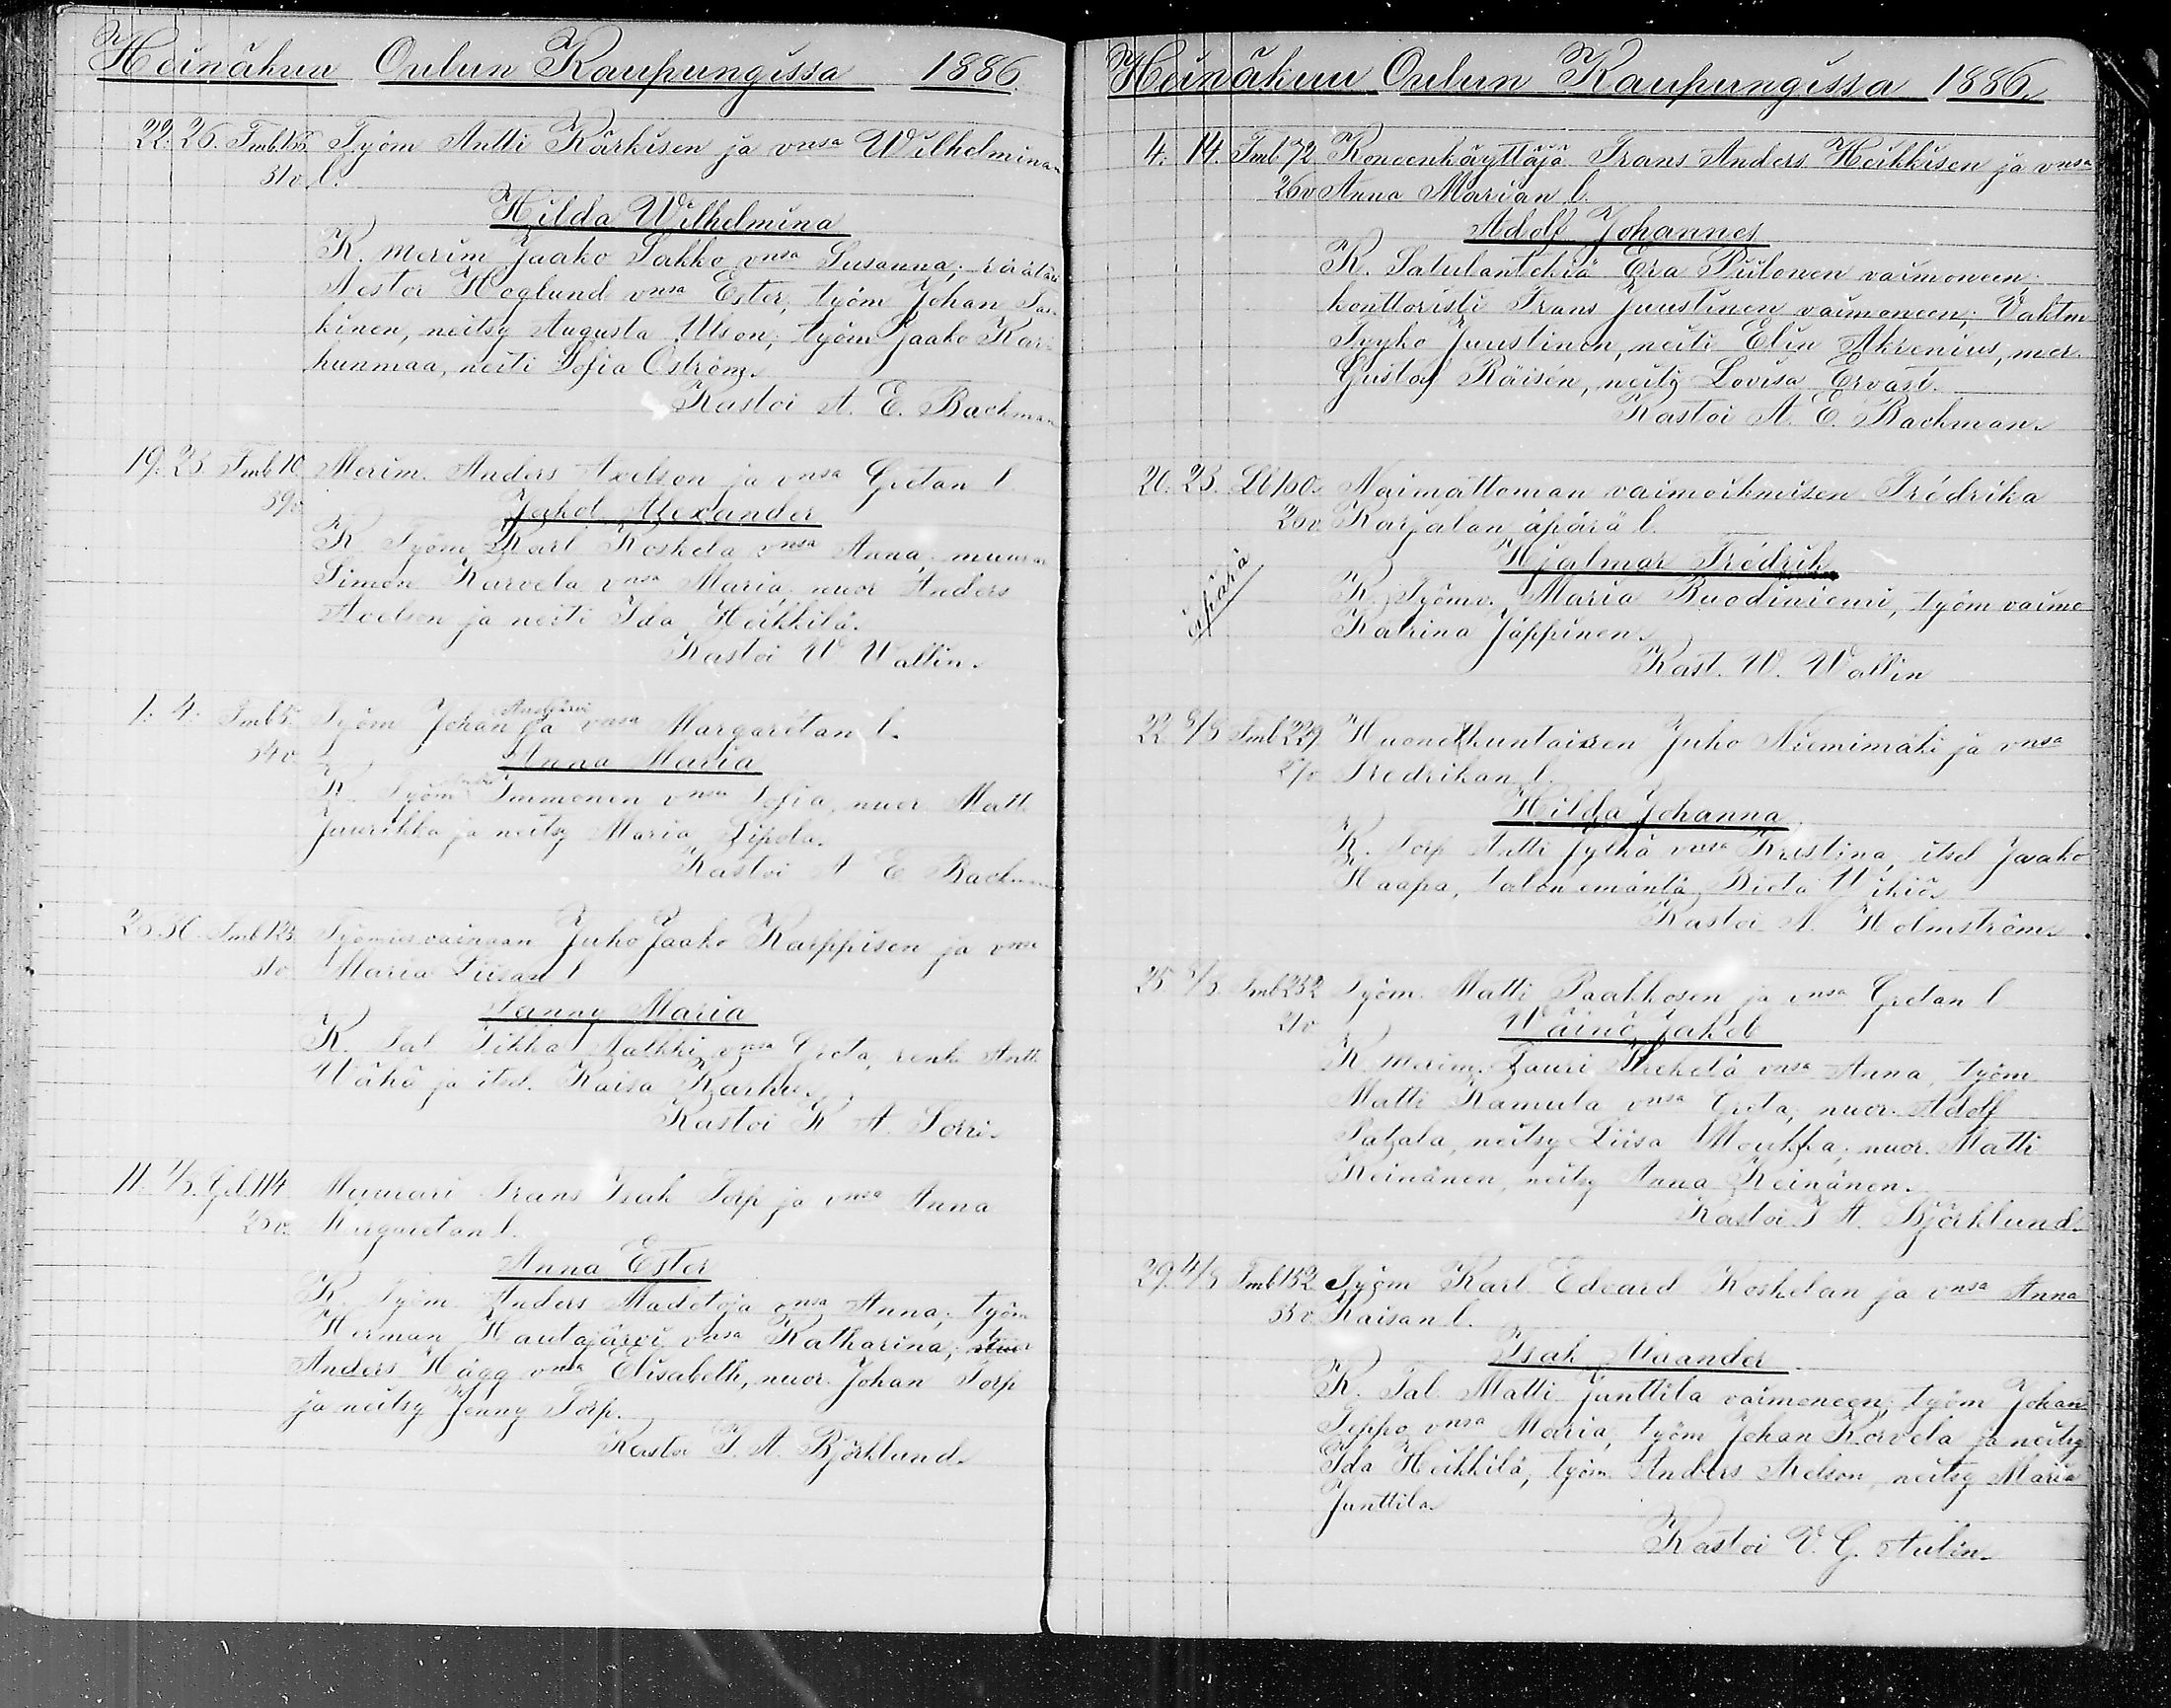 Heinäkuu Oulun Kaupungissa 1886.
22. 26. Tmb.156. Työm Antti Kärkisen ja vnsa Wilhelminan
31 v l.
Hilda Wilhelmina
K. merim Jaako Sakko vnsa Susanna; räätäli
Nestor Höglund vnsa Ester, työm Johan
kinen, neitsy Augusta Ulson; työm Jaako Kar-
hunmaa, neiti Sofia Öström.
Kastoi A. E. Backman
19. 23. Tmb 10 Merim. Anders Axelson ja vnsa Gretan l.
39 v
Jakob Alexander
K. Työm Karl Koskela vnsa Anna, muurar
Simon Karvela vnsa Maria, nuor Anders
Axelson ja neiti Ida Heikkilä.
Kastoi W Wallin.
1. 4. Tmb 5. Työm Johan ja vnsa Margaretan l.
34 v
Anna Maria
K. Työm Immonen vnsa Sofia, nuor Matti
Juurikka ja neitsy Maria Sipola.
Kastoi A E Backman
25 30. Tmb 123 Työmies vainaan Juho Jaako Karppisen ja vnsa
31 v Maria Liisan l
Fanny Maria
K. Tal Pikka vnsa Greta, renki Antti
Wähä ja itsel. Kaisa Karhu.
Kastoi K A. Sorri.
11. 1/8. Gel.114 Muurari Frans Isak Torp ja vnsa Anna
25 v. Margaretan l.
Anna Ester
K. Työm. Anders Madetoja vnsa Anna; työm
Herman Hautajärvi vnsa Katharina;
Anders Hägg vnsa Elisabeth, nuor. Johan Torp
ja neitsy Jenny Torp.
Kastoi J. A. Björklund.
Heinäkuu Oulun Kaupungissa 1886.
4. 14 Tmb 72 Koneenkäyttäjä Frans Anders Heikkisen ja vnsa
26 v Anna Marian l.
Adolf Johannes
K. Satulantekiä Era Piilonen vaimoneen;
konttoristi Frans Juustinen vaimoneen; Vaktm
Tyyko Juustinen, neiti Elin Akrenius, mer.
Gustaf Räisen, neitsy Lovisa Ervast.
Kastoi A. E. Backman.
20. 23. Ll 100. Naimattoman vaimoihmisen Fredrika
26 v. Karjalan äpärä l.
Hjalmar Fredrik
äpärä
K. Työmv. Maria Ruodiniemi, työm vaimo
Katrina Jäppinen.
Kast. W. Wallin
22 5/8 Tmb 229. Huonekuntaisen Juho Niemimäki ja vnsa
27 v Fredrikan l.
Hilda Johanna
K. Torp Antti Jylhä vnsa Kristina, itsel Jaako
Haapa, talon emäntä Brita
Kastoi A. Holmström.
25 1/8. Tmb 252 Työm. Matti Paakkosen ja vnsa Gretan l
21 v
Wäinö Jakob
K. merim. Lauri vnsa Anna, työm
Matti Kamula vnsa Greta, nuor. Adolf
Patala, neitsy Liisa Moukka; nuor. Matti
Keinänen, neitsy Anna Keinänen.
Kastoi J A. Björklund.
29. 4/8 Tmb 152 Työm Karl Edvard Koskelan ja vnsa Anna
33 v Kaisan l.
Isak Maander
K. Tal. Matti Junttila vaimoneen; työm Johan
Seppo vnsa Maria, työm Johan Korvela ja neitsy
Ida Heikkilä, työm. Anders Axelson, neitsy Maria
Junttila.
Kastoi V. G. Aulin.